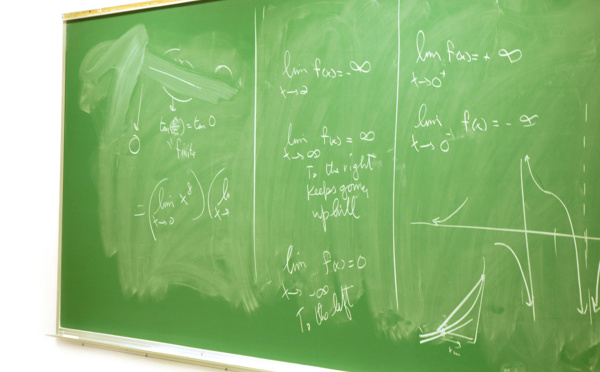 0
tan( ) = tan 0
finite
= (lim x→0 x⁸) (
lim x→2 f(x) = -∞
lim x→∞ f(x) = ∞
To the right
keeps going
uphill
lim x→-∞ f(x) = 0
To the left
lim x→0⁺ f(x) = +∞
lim x→0⁻ f(x) = -∞